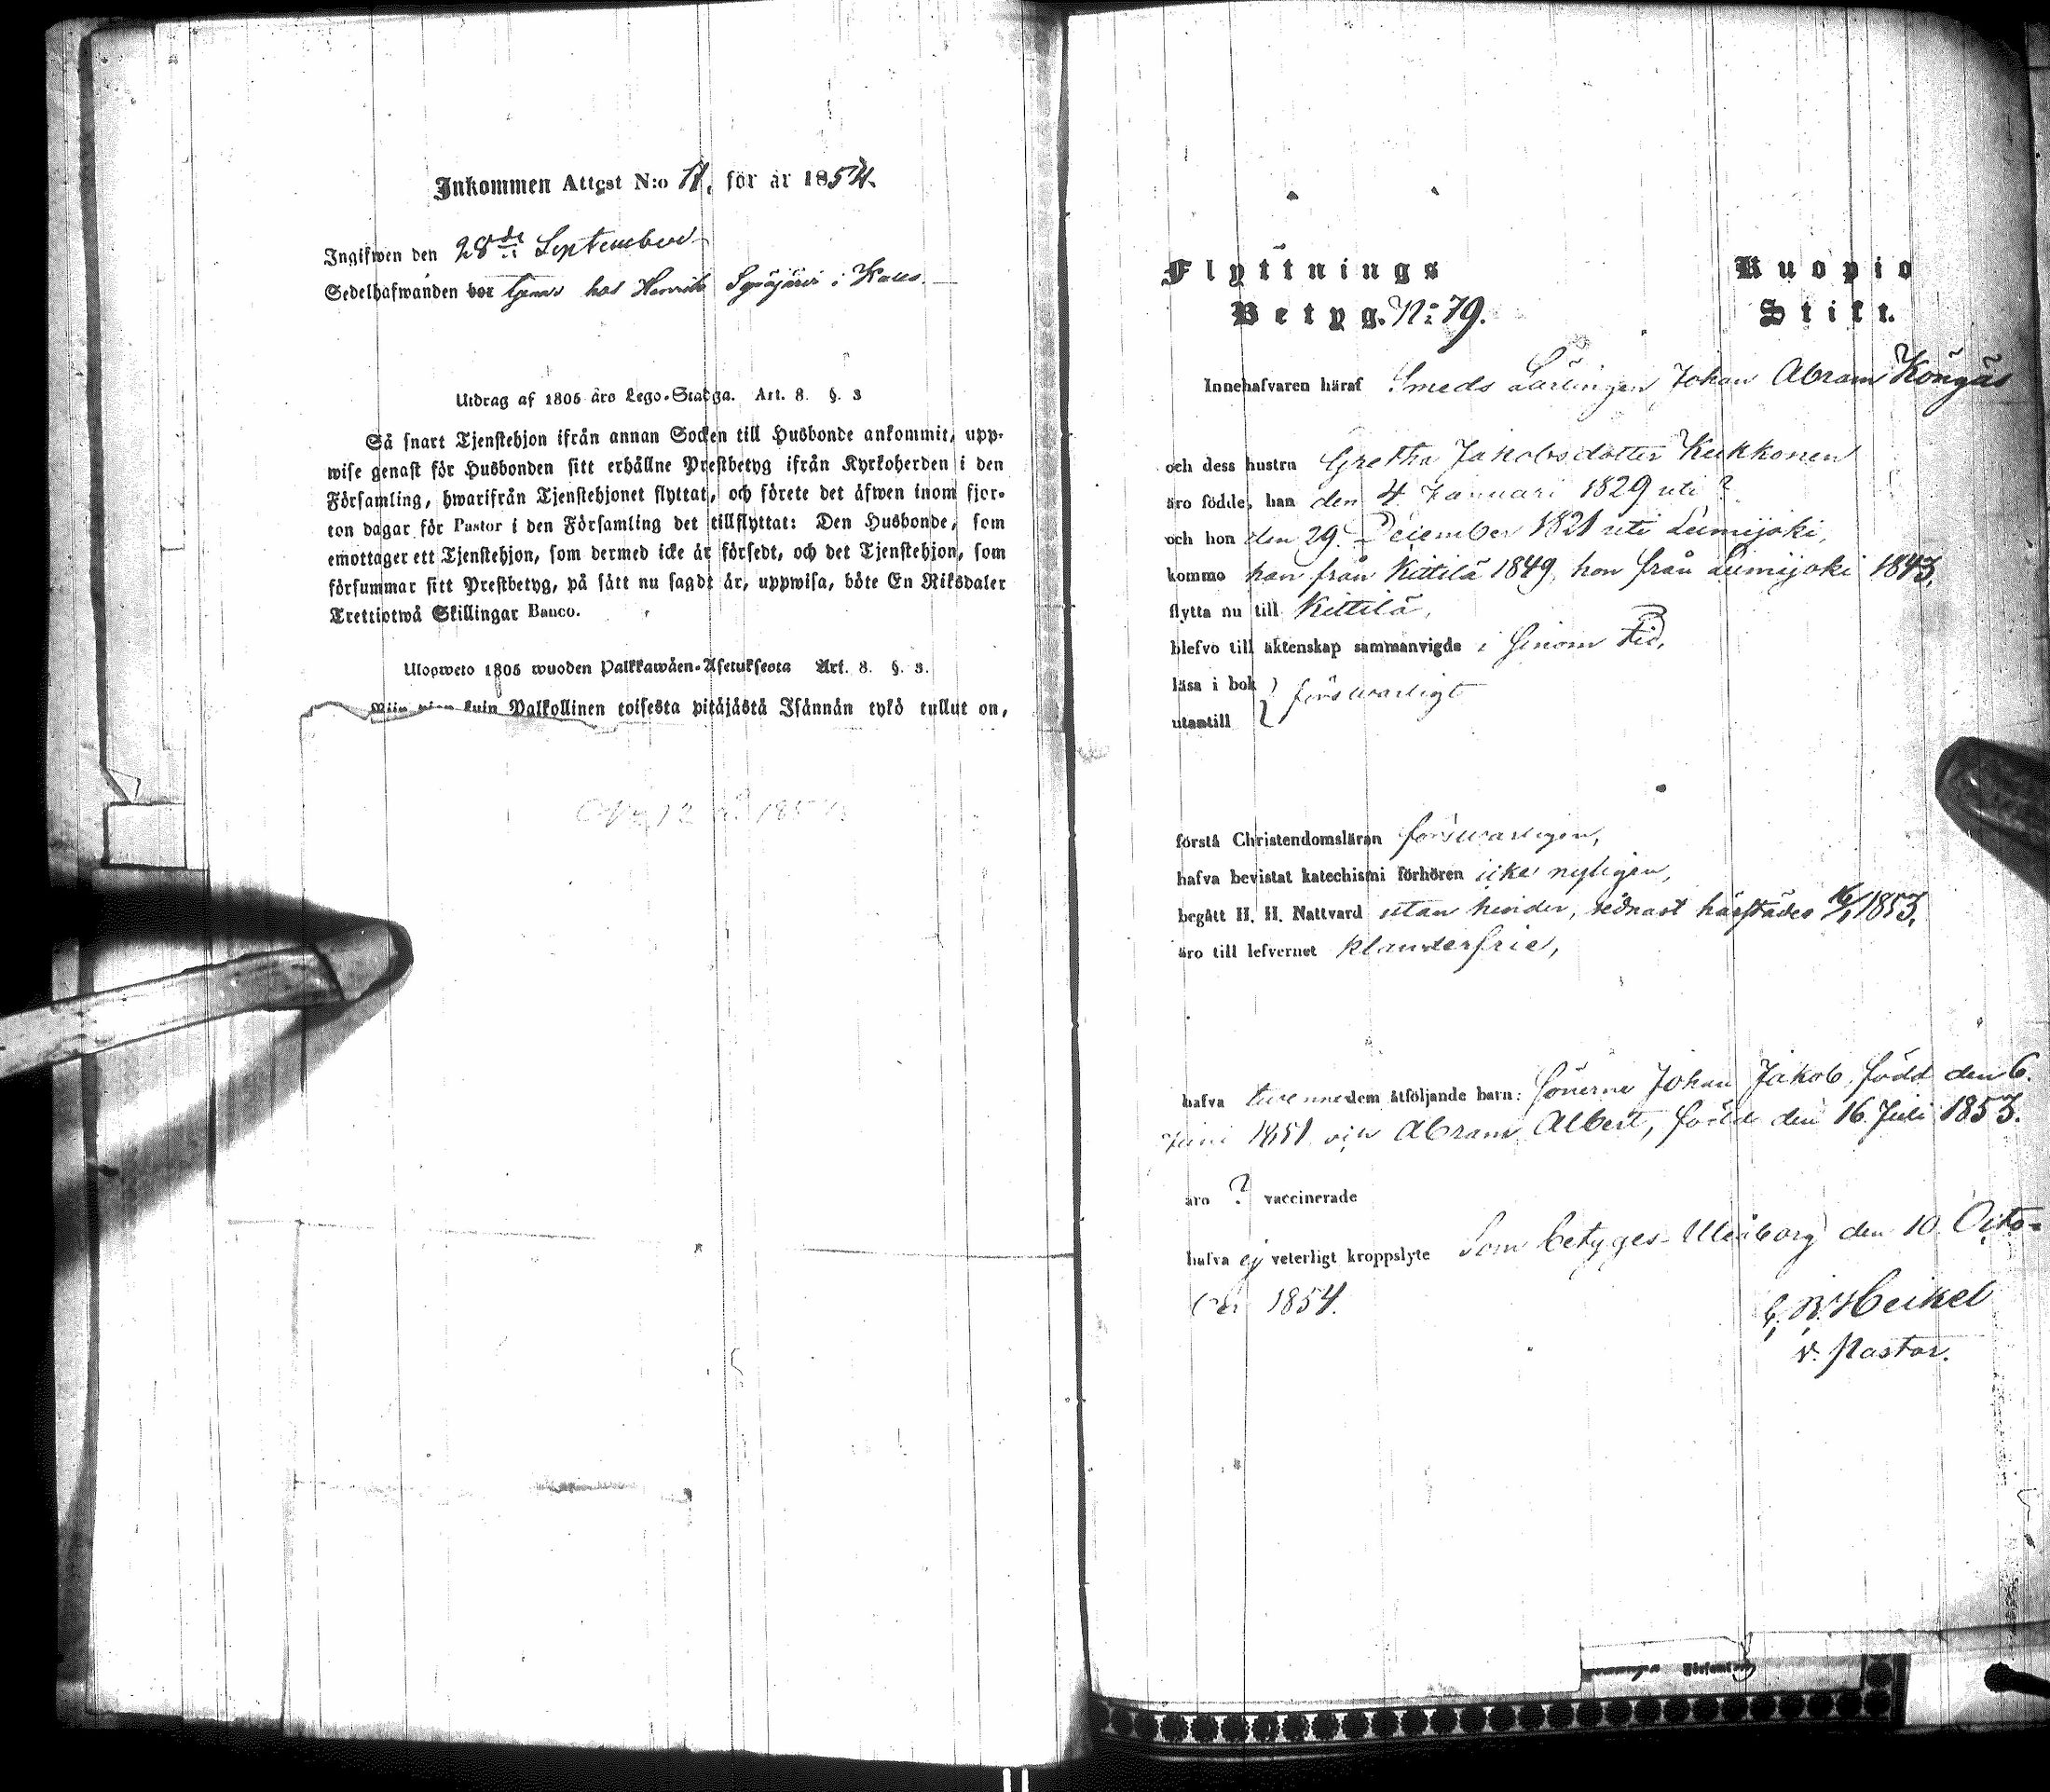 Inkommen Attest N:o 11. för år 1854.
Ingifwen den 28de September
Sedelhafwanden bor tjenar hos Henrik Syväjärvi i
Utdrag af 1805 års Lego-Stadga. Art. 8. §. 3
Så snart Tjenstehjon ifrån annan Socken till Husbonde ankommit, upp-
wise genast för Husbonden sitt erhållne Prestbetyg ifrån Kyrkoherden i den
Församling, hwarifrån Tjenstehjonet flyttat, och förete det äfwen inom fjor-
ton dagar för Pastor i den Församling det tillflyttat: Den Husbonde, som
emottager ett Tjenstehjon, som dermed icke är försedt, och det Tjenstehjon, som
försummar sitt Prestbetyg, på sätt nu sagdt är, uppwisa, böte En Riksdaler
Trettiotwå Skillingar Banco.
Ulosweto 1805 wuoden Palkkawäen-Asetuksesta Art. 8. §. 3.
Niin pian kuin Palkollinen toisesta pitäjästä Isännän tykö tullut on,
Flyttnings Kuopio
Betyg. No 79. Stift.
Innehafvaren häraf Smeds Lärlingen Johan Abram Köngäs
och dess hustru Gretha Jakobsdotter Kukkonen
äro födde, han den 4 Januari 1829 uti ?
och hon den 29. December 1821 uti Lumijoki,
kommo han från Kittilä 1849, hon från Lumijoki 1843,
flytta nu till Kittilä,
blefvo till äktenskap sammanvigde i sinom tid,
läsa i bok } försvarligt
utantill
förstå Christendomsläran försvarligen,
hafva bevistat katechismi förhören icke nyligen,
begått H. H. Nattvard utan hinder, sednast härstädes 16/1 1853,
äro till lefvernet klanderfrie,
hafva tvenne dem åtföljande barn: Sönerne Johan Jakob, född den 6.
Juni 1851 och Abram Albert, född den 16. Juli 1853.
äro ? vaccinerade
hafva ej veterligt kroppslyte Som betyges. Uleåborg den 10 Octo-
ber 1854.
Heikel
v. Pastor.